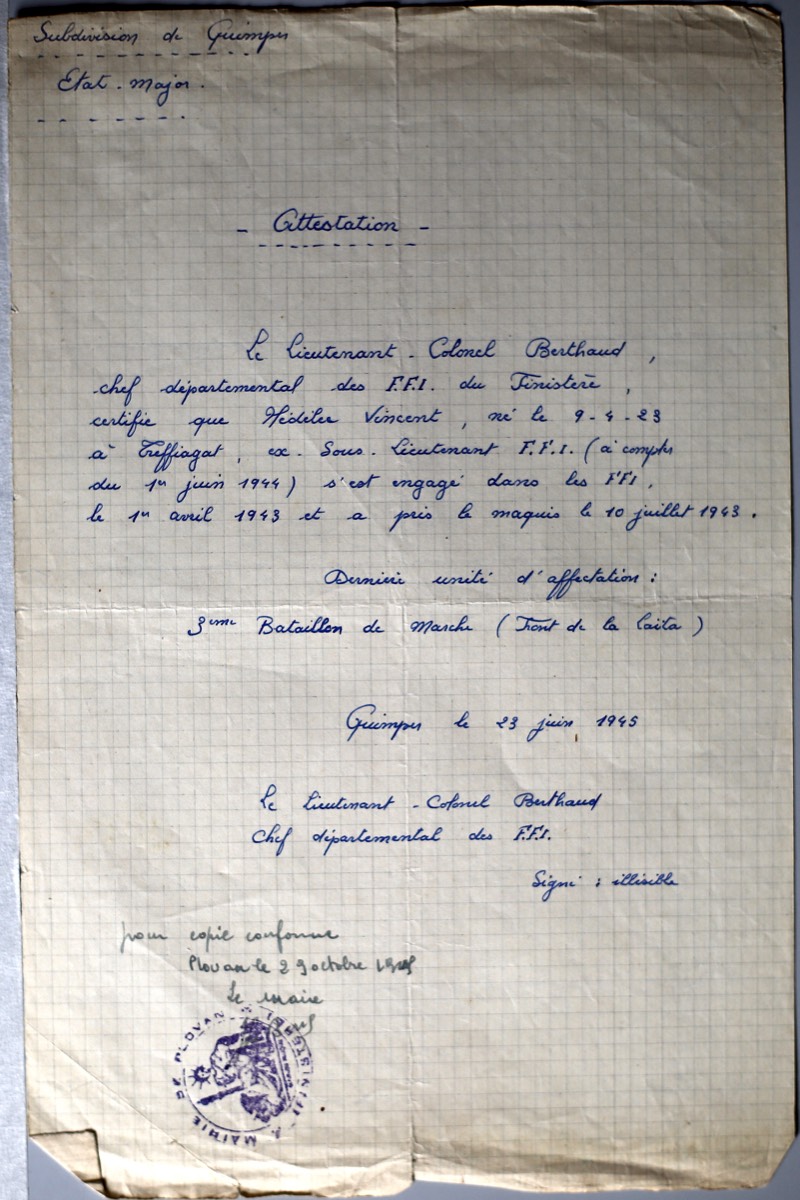 Subdivision de Quimper
Etat-Major.
- Attestation -
Le Lieutenant-Colonel Berthaud,
chef départemental des F.F.I. du Finistère,
certifie que Hédéler Vincent, né le 9-4-23
à Treffiagat, ex-Sous-Lieutenant F.F.I. (à compter
du 1er juin 1944) s'est engagé dans les FFI,
le 1er avril 1943 et a pris le maquis le 10 juillet 1943.
Dernière unité d'affectation :
3ème Bataillon de Marche (Front de la Laita)
Quimper le 23 juin 1945
Le Lieutenant-Colonel Berthaud
Chef départemental des F.F.I.
Signé : illisible
pour copie conforme
Plovan le 29 octobre 1945
Le maire
MAIRIE DE PLOVAN * (FINISTÈRE) *